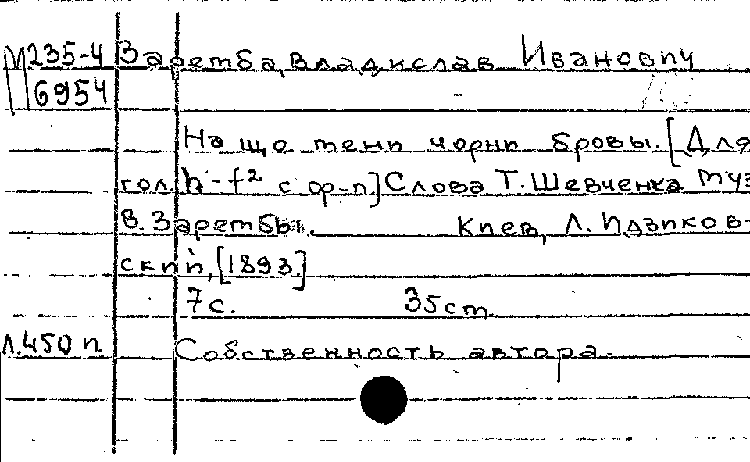 М 235-4 Заремба, Владислав Иванович
6954
На що мені чорні бровы. [Для
гол. h-f² с ф-п.] Слова Т. Шевченка Муз
В. Зарембы. Киев, Л. Идзиков-
ский, [1893]
7 с. 35 см.
Л.450 п. Собственность автора.